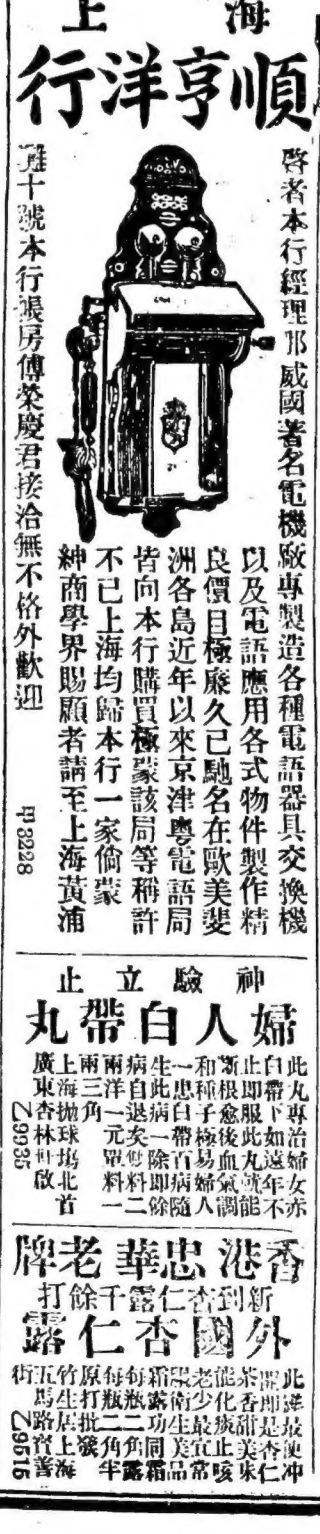 上海
順亨洋行
啓者本行經理那威國著名電機廠專製造各種電語器具交換機
以及電語應用各式物件製作精
良價目極廉久已馳名在歐美斐
洲各島近年以來京津粵電語局
皆向本行購買極蒙該局等稱許
不已上海均歸本行一家倘蒙
紳商學界賜顧者請至上海黃浦
灘十號本行賬房傅榮慶君接洽無不格外歡迎
甲3228
神驗立止
婦人白帶丸
此丸專治婦女赤
白帶下如遠年不
止即服此丸就能
斷根愈後血氣調
和種子極易婦人
一患白帶百病隨
生此病一除即餘
病自退矣雙料二
兩洋一元單料一
兩三角
上海拋球塲北首
廣東杏林世啟
乙9935
香港忠華老牌
新到杏仁露千餘打
外國杏仁露
此露最便冲
開即是杏仁
茶香甜美味
能化痰止咳
老少最宜常
服衛生美品
霜露功同霜
每瓶二角露
每瓶二角半
原打批發
竹生居上海
五馬路寶善
街
乙9515